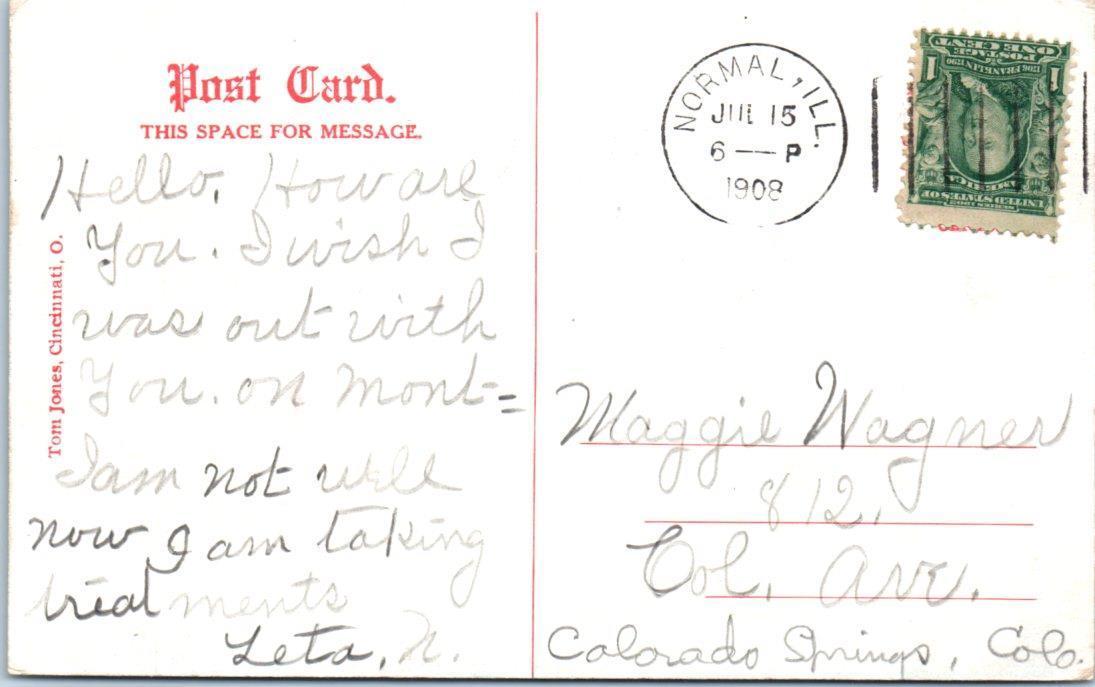 Post Card.
THIS SPACE FOR MESSAGE.
Hello, How are
You. I wish I
was out with
You. on Mont=
I am not well
now I am taking
treatments
Leta, N.
Tom Jones, Cincinnati, O.
NORMAL, ILL.
JUL 15
6 — P
1908
SERIES 1902
UNITED STATES OF
AMERICA
1706 FRANKLIN 1790
1 1
POSTAGE
ONE CENT
Maggie Wagner
812,
Col. Ave.
Colorado Springs, Colo.